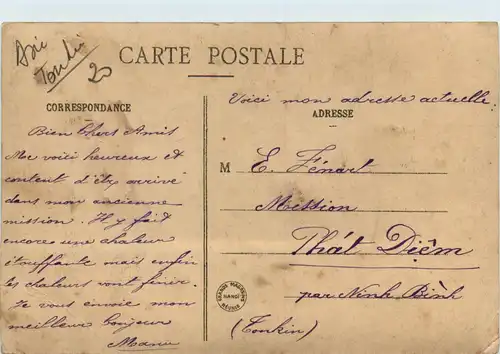 Tonkin
CARTE POSTALE
CORRESPONDANCE
Bien Chers Amis
Me voici heureux et
content d'être arrivé
dans mon ancienne
mission. Il y fait
encore une chaleur
étouffante mais enfin
les chaleurs vont finir.
Je vous envoie mon
meilleur bonjour
Voici mon adresse actuelle:
ADRESSE
M E. Fénart
Mission
Phát Diêm
par Ninh Bình
(Tonkin)
GRANDS MAGASINS
HANOI
RÉUNIS